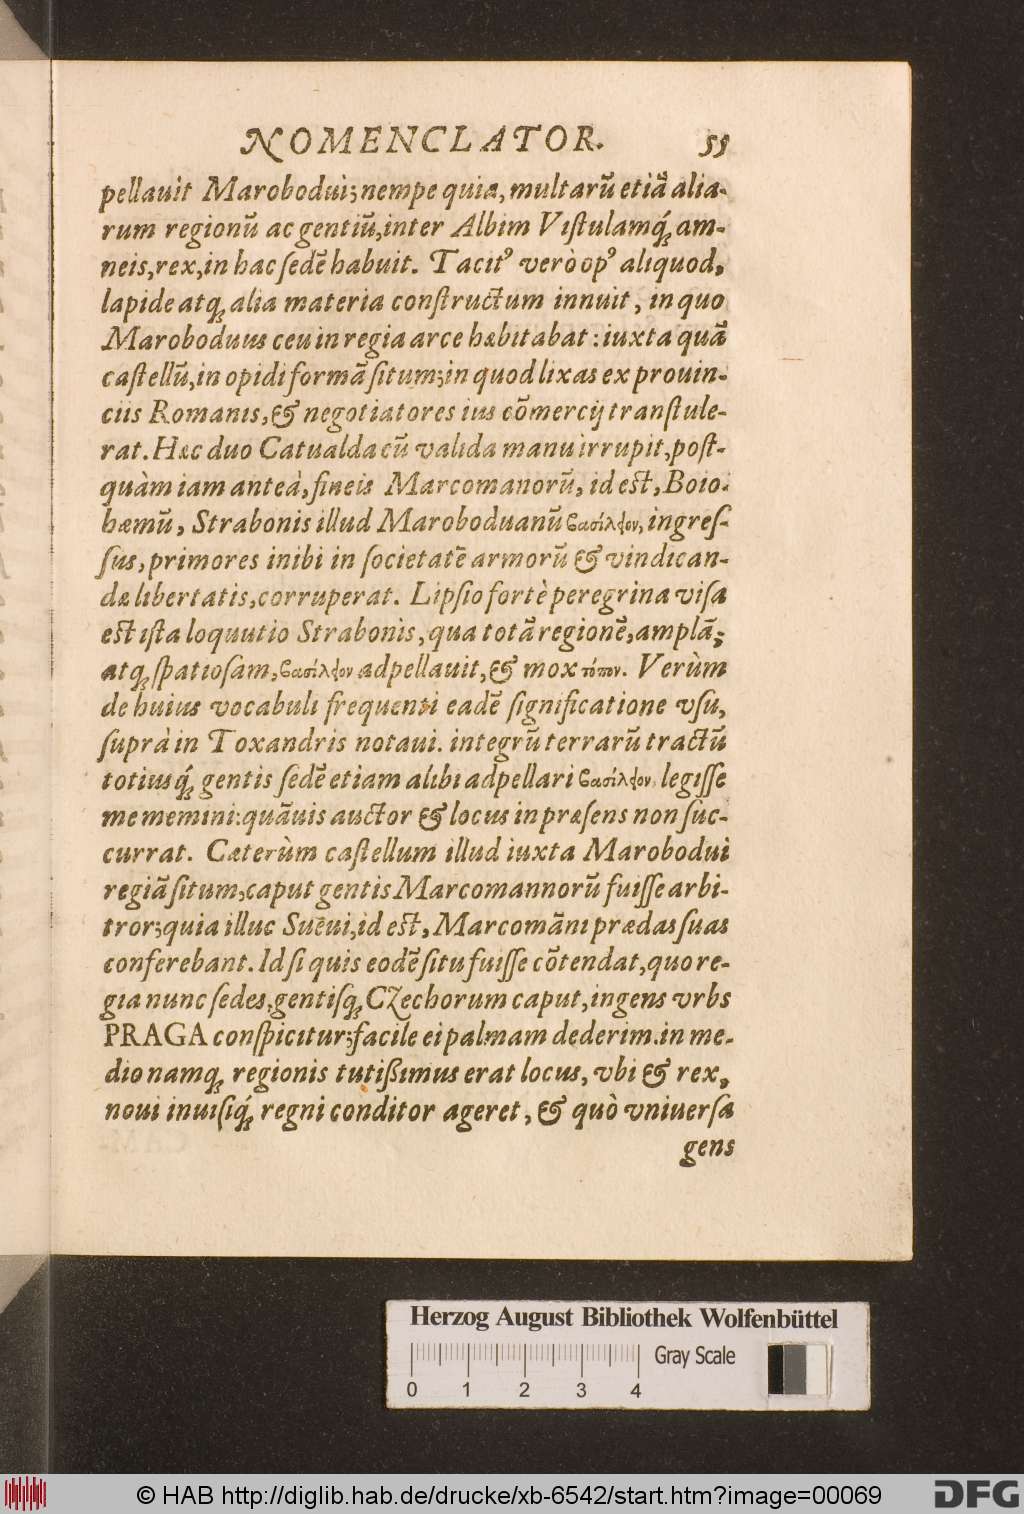 NOMENCLATOR. 55
pellauit Marobodui; nempe quia, multarũ etiã alia-
rum regionũ ac gentiũ, inter Albim Viſtulamq́; am-
neis, rex, in hac ſedẽ habuit. Tacitꝰ verò opꝰ aliquod,
lapide atq; alia materia conſtructum innuit, in quo
Maroboduus ceu in regia arce habitabat: iuxta quã
caſtellũ, in opidi formã ſitum; in quod lixas ex prouin-
ciis Romanis, & negotiatores ius cõmercij tranſtule-
rat. Hæc duo Catualda cũ valida manu irrupit, poſt-
quàm iam anteà, fineis Marcomanorũ, id eſt, Boio-
hæmũ, Strabonis illud Maroboduanũ βασίλειον, ingreſ-
ſus, primores inibi in ſocietatẽ armorũ & vindican-
dæ libertatis, corruperat. Lipſio fortè peregrina viſa
eſt iſta loquutio Strabonis, qua totã regionẽ, amplã;
atq; ſpatioſam, βασίλειον adpellauit, & mox τόπον. Verùm
de huius vocabuli frequenti eadẽ ſignificatione vſu,
ſuprà in Toxandris notaui. integrũ terrarũ tractũ
totiusq́; gentis ſedẽ etiam alibi adpellari βασίλειον, legiſſe
me memini: quãuis auctor & locus in præſens non ſuc-
currat. Cæterùm caſtellum illud iuxta Marobodui
regiã ſitum, caput gentis Marcomannorũ fuiſſe arbi-
tror; quia illuc Sueui, id eſt, Marcomãni prædas ſuas
conferebant. Id ſi quis eodẽ ſitu fuiſſe cõtendat, quo re-
gia nunc ſedes, gentiſq; Czechorum caput, ingens vrbs
PRAGA conſpicitur; facile ei palmam dederim. in me-
dio namq; regionis tutißimus erat locus, vbi & rex,
noui inuiſiq́; regni conditor ageret, & quò vniuerſa
gens
Herzog August Bibliothek Wolfenbüttel
Gray Scale
0 1 2 3 4
© HAB http://diglib.hab.de/drucke/xb-6542/start.htm?image=00069
DFG